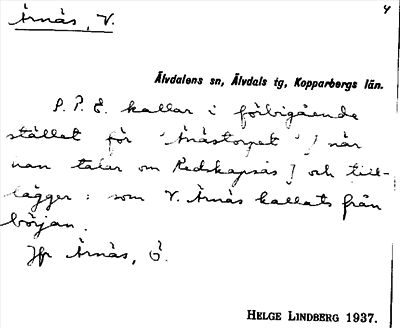 Årnäs, V.
4
Älvdalens sn, Älvdals tg, Kopparbergs län.
P. P. E. kallar i förbigående
stället för "Årnästorpet" [när
man talar om Redskapsås] och till-
lägger: som V. Årnäs kallats från
början.
Jfr Årnäs, Ö.
HELGE LINDBERG 1937.